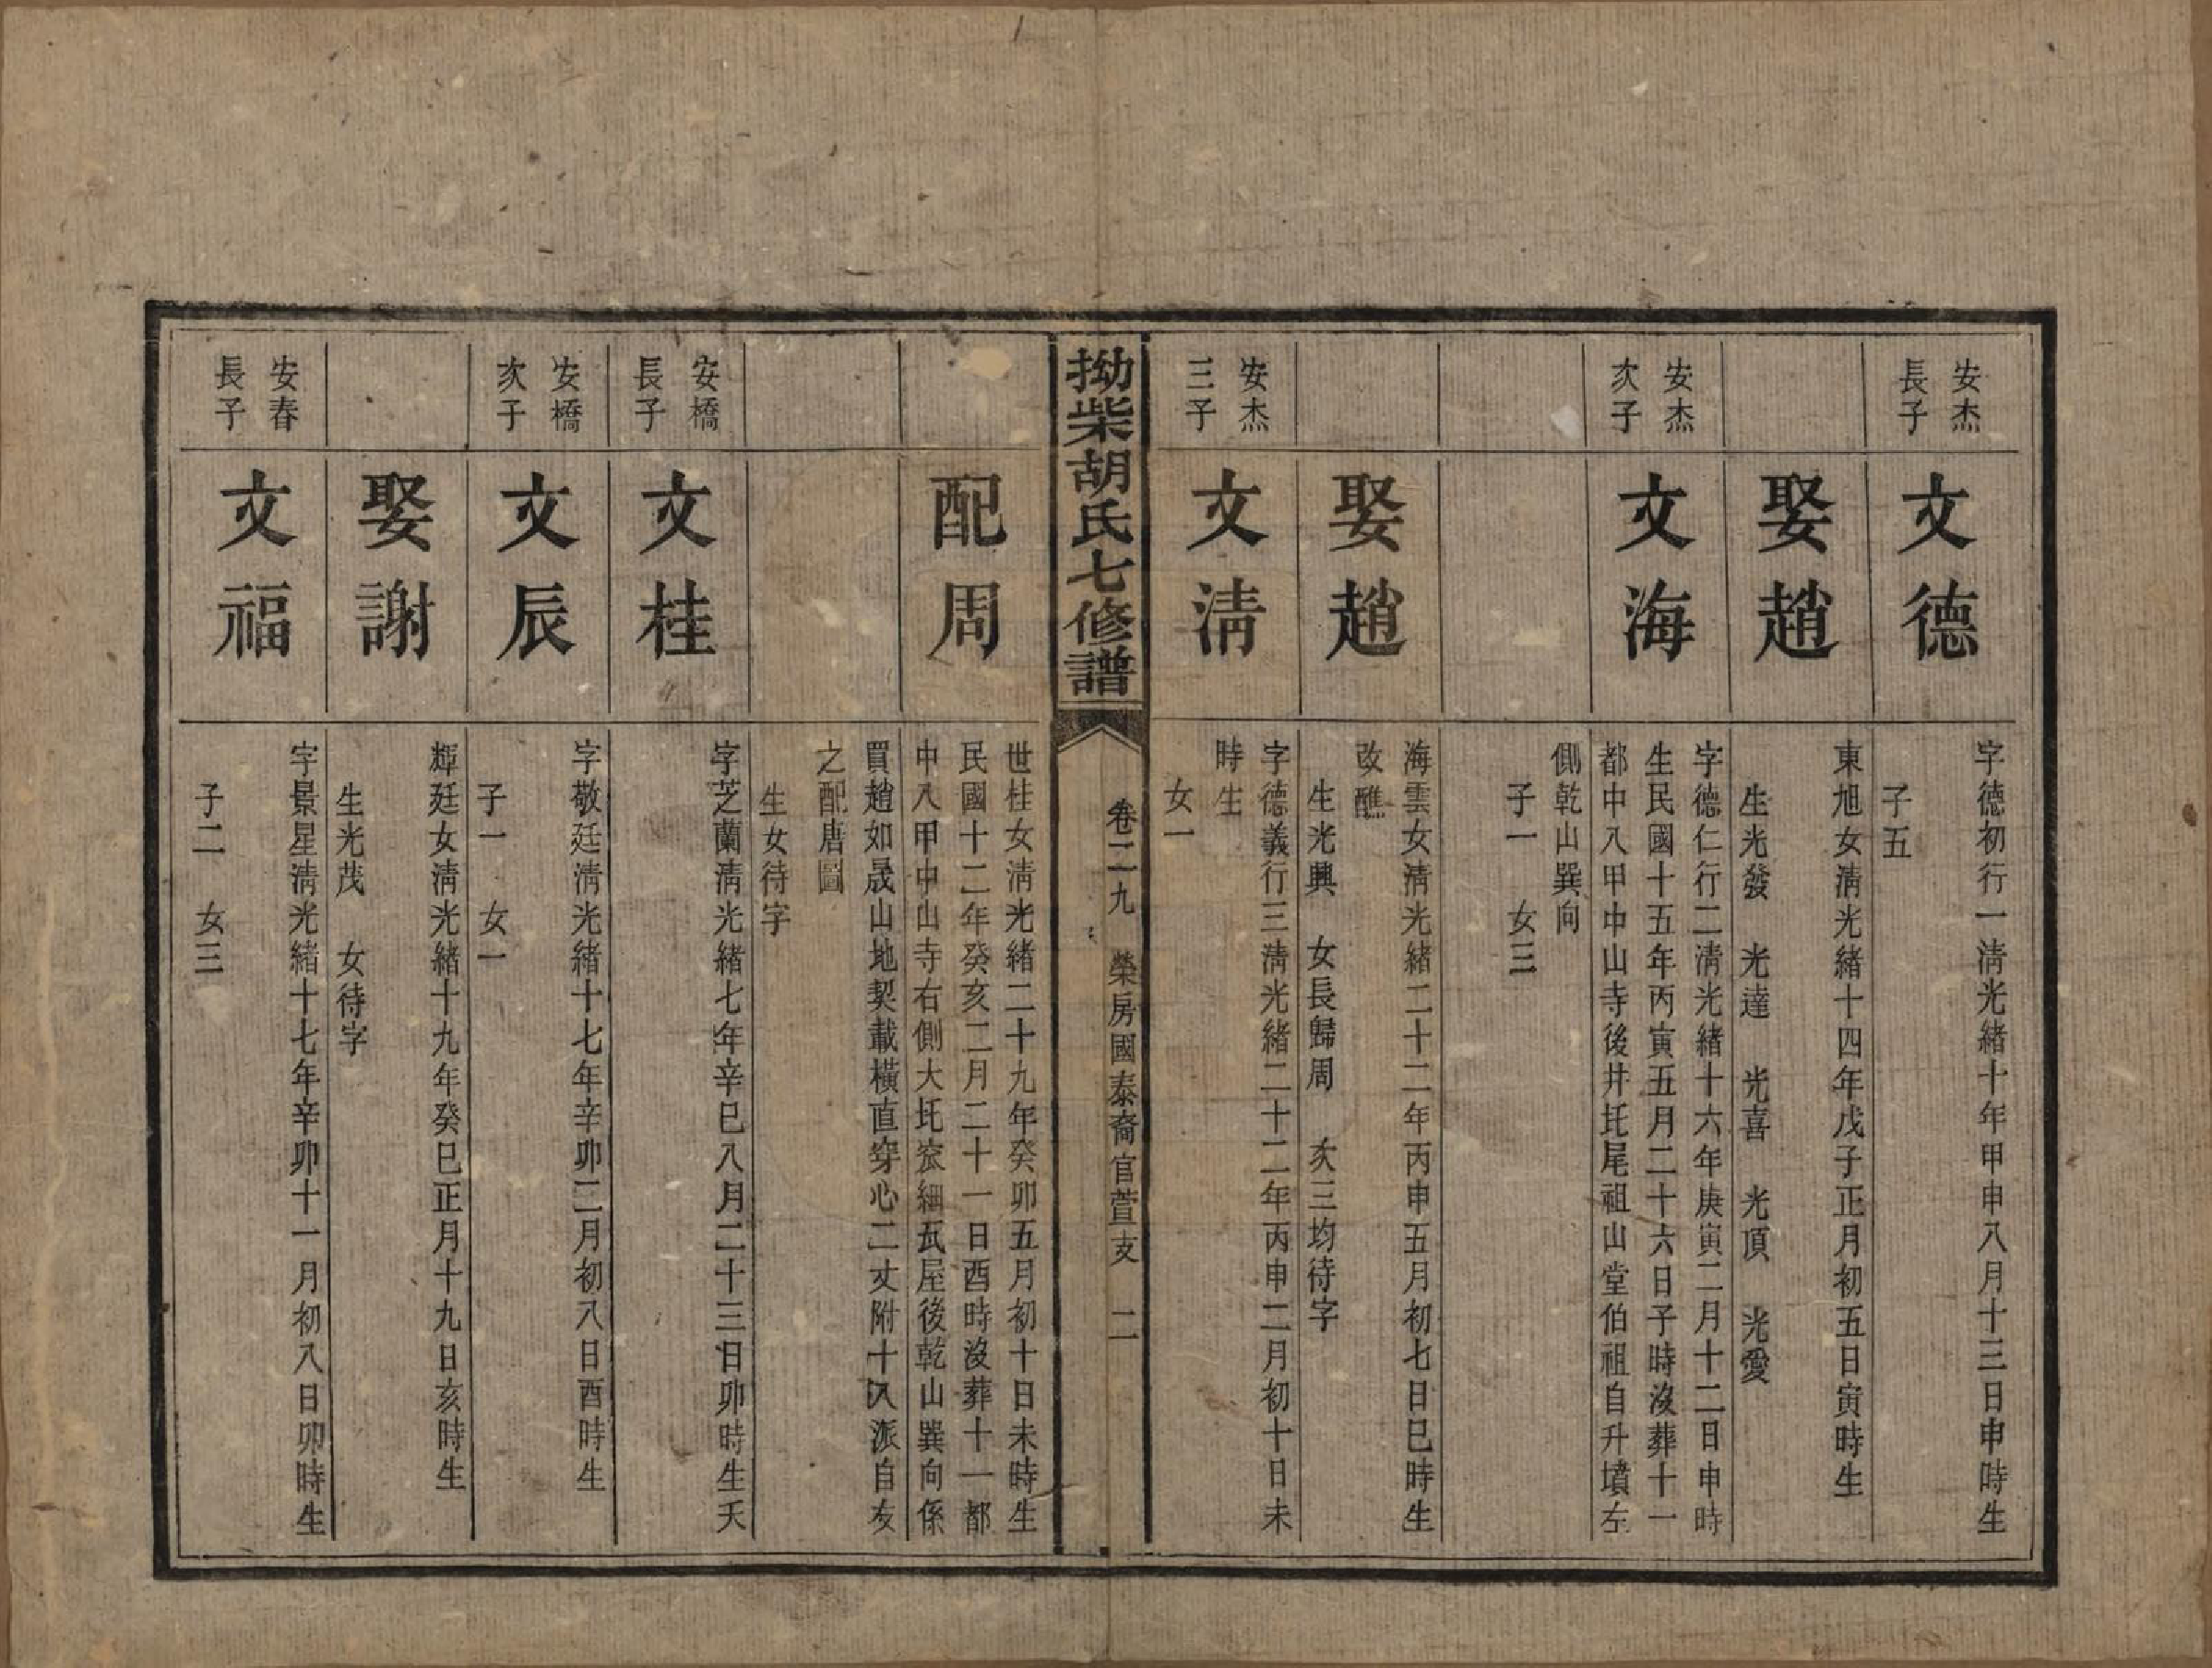 安杰
長子
文德
字德初行一清光緒十年甲申八月十三日申時生
子五
娶趙
東旭女清光緒十四年戊子正月初五日寅時生
生光發　光達　光喜　光頂　光愛
安杰
次子
文海
字德仁行二清光緒十六年庚寅二月十二日申時
生民國十五年丙寅五月二十六日子時沒葬十一
都中八甲中山寺後井圫尾祖山堂伯祖自升墳左
側乾山巽向
子一　女三
娶趙
海雲女清光緒二十二年丙申五月初七日巳時生
改醮
生光興　女長歸周　次三均待字
安杰
三子
文清
字德義行三清光緒二十二年丙申二月初十日未
時生
女一
拗柴胡氏七修譜
卷二九　榮房國泰裔官萱支　二
配周
世桂女清光緒二十九年癸卯五月初十日未時生
民國十二年癸亥二月二十一日酉時沒葬十一都
中八甲中山寺右側大圫窊細瓦屋後乾山巽向係
買趙如晟山地契載橫直穿心二丈附十八派自友
之配唐圖
生女待字
安橋
長子
文桂
字芝蘭清光緒七年辛巳八月二十三日卯時生夭
安橋
次子
文辰
字敬廷清光緒十七年辛卯二月初八日酉時生
子一　女一
娶謝
輝廷女清光緒十九年癸巳正月十九日亥時生
生光茂　女待字
安春
長子
文福
字景星清光緒十七年辛卯十一月初八日卯時生
子二　女三